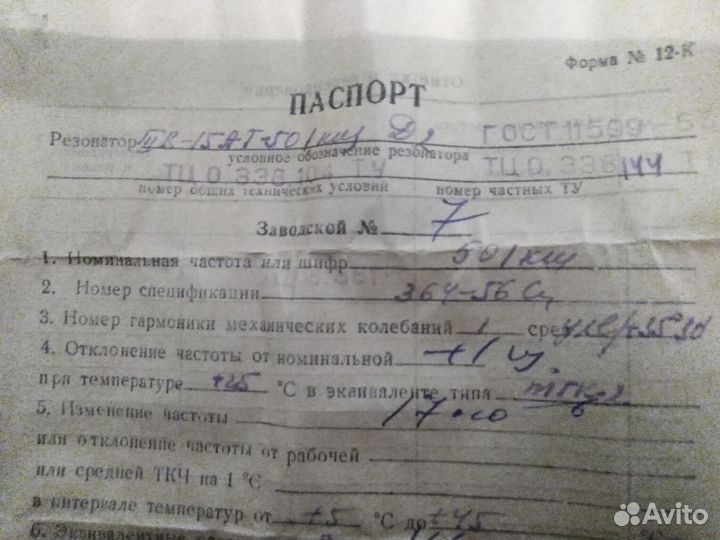 Форма № 12-К
ПАСПОРТ
Резонатор 15АТ-501 кгц ГОСТ 11599
условное обозначение резонатора
ТЦ 0.338 104 ТУ ТЦ 0.338 144
номер общих технических условий номер частных ТУ
Заводской № 7
1. Номинальная частота или шифр 501 кгц
2. Номер спецификации 364-56
3. Номер гармоники механических колебаний 1
4. Отклонение частоты от номинальной +1
при температуре +25 °С в эквиваленте типа
5. Изменение частоты
или отклонение частоты от рабочей
или средней ТКЧ на 1 °С
в интервале температур от +5 °С до +45
6. Эквивалентные
Avito